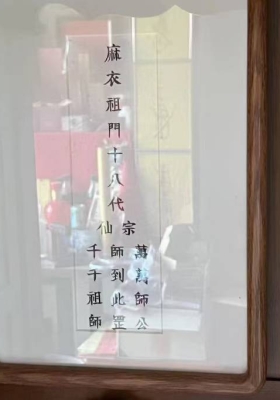 麻衣祖門十八代
宗仙
萬萬師公
師到此罡
千千祖師